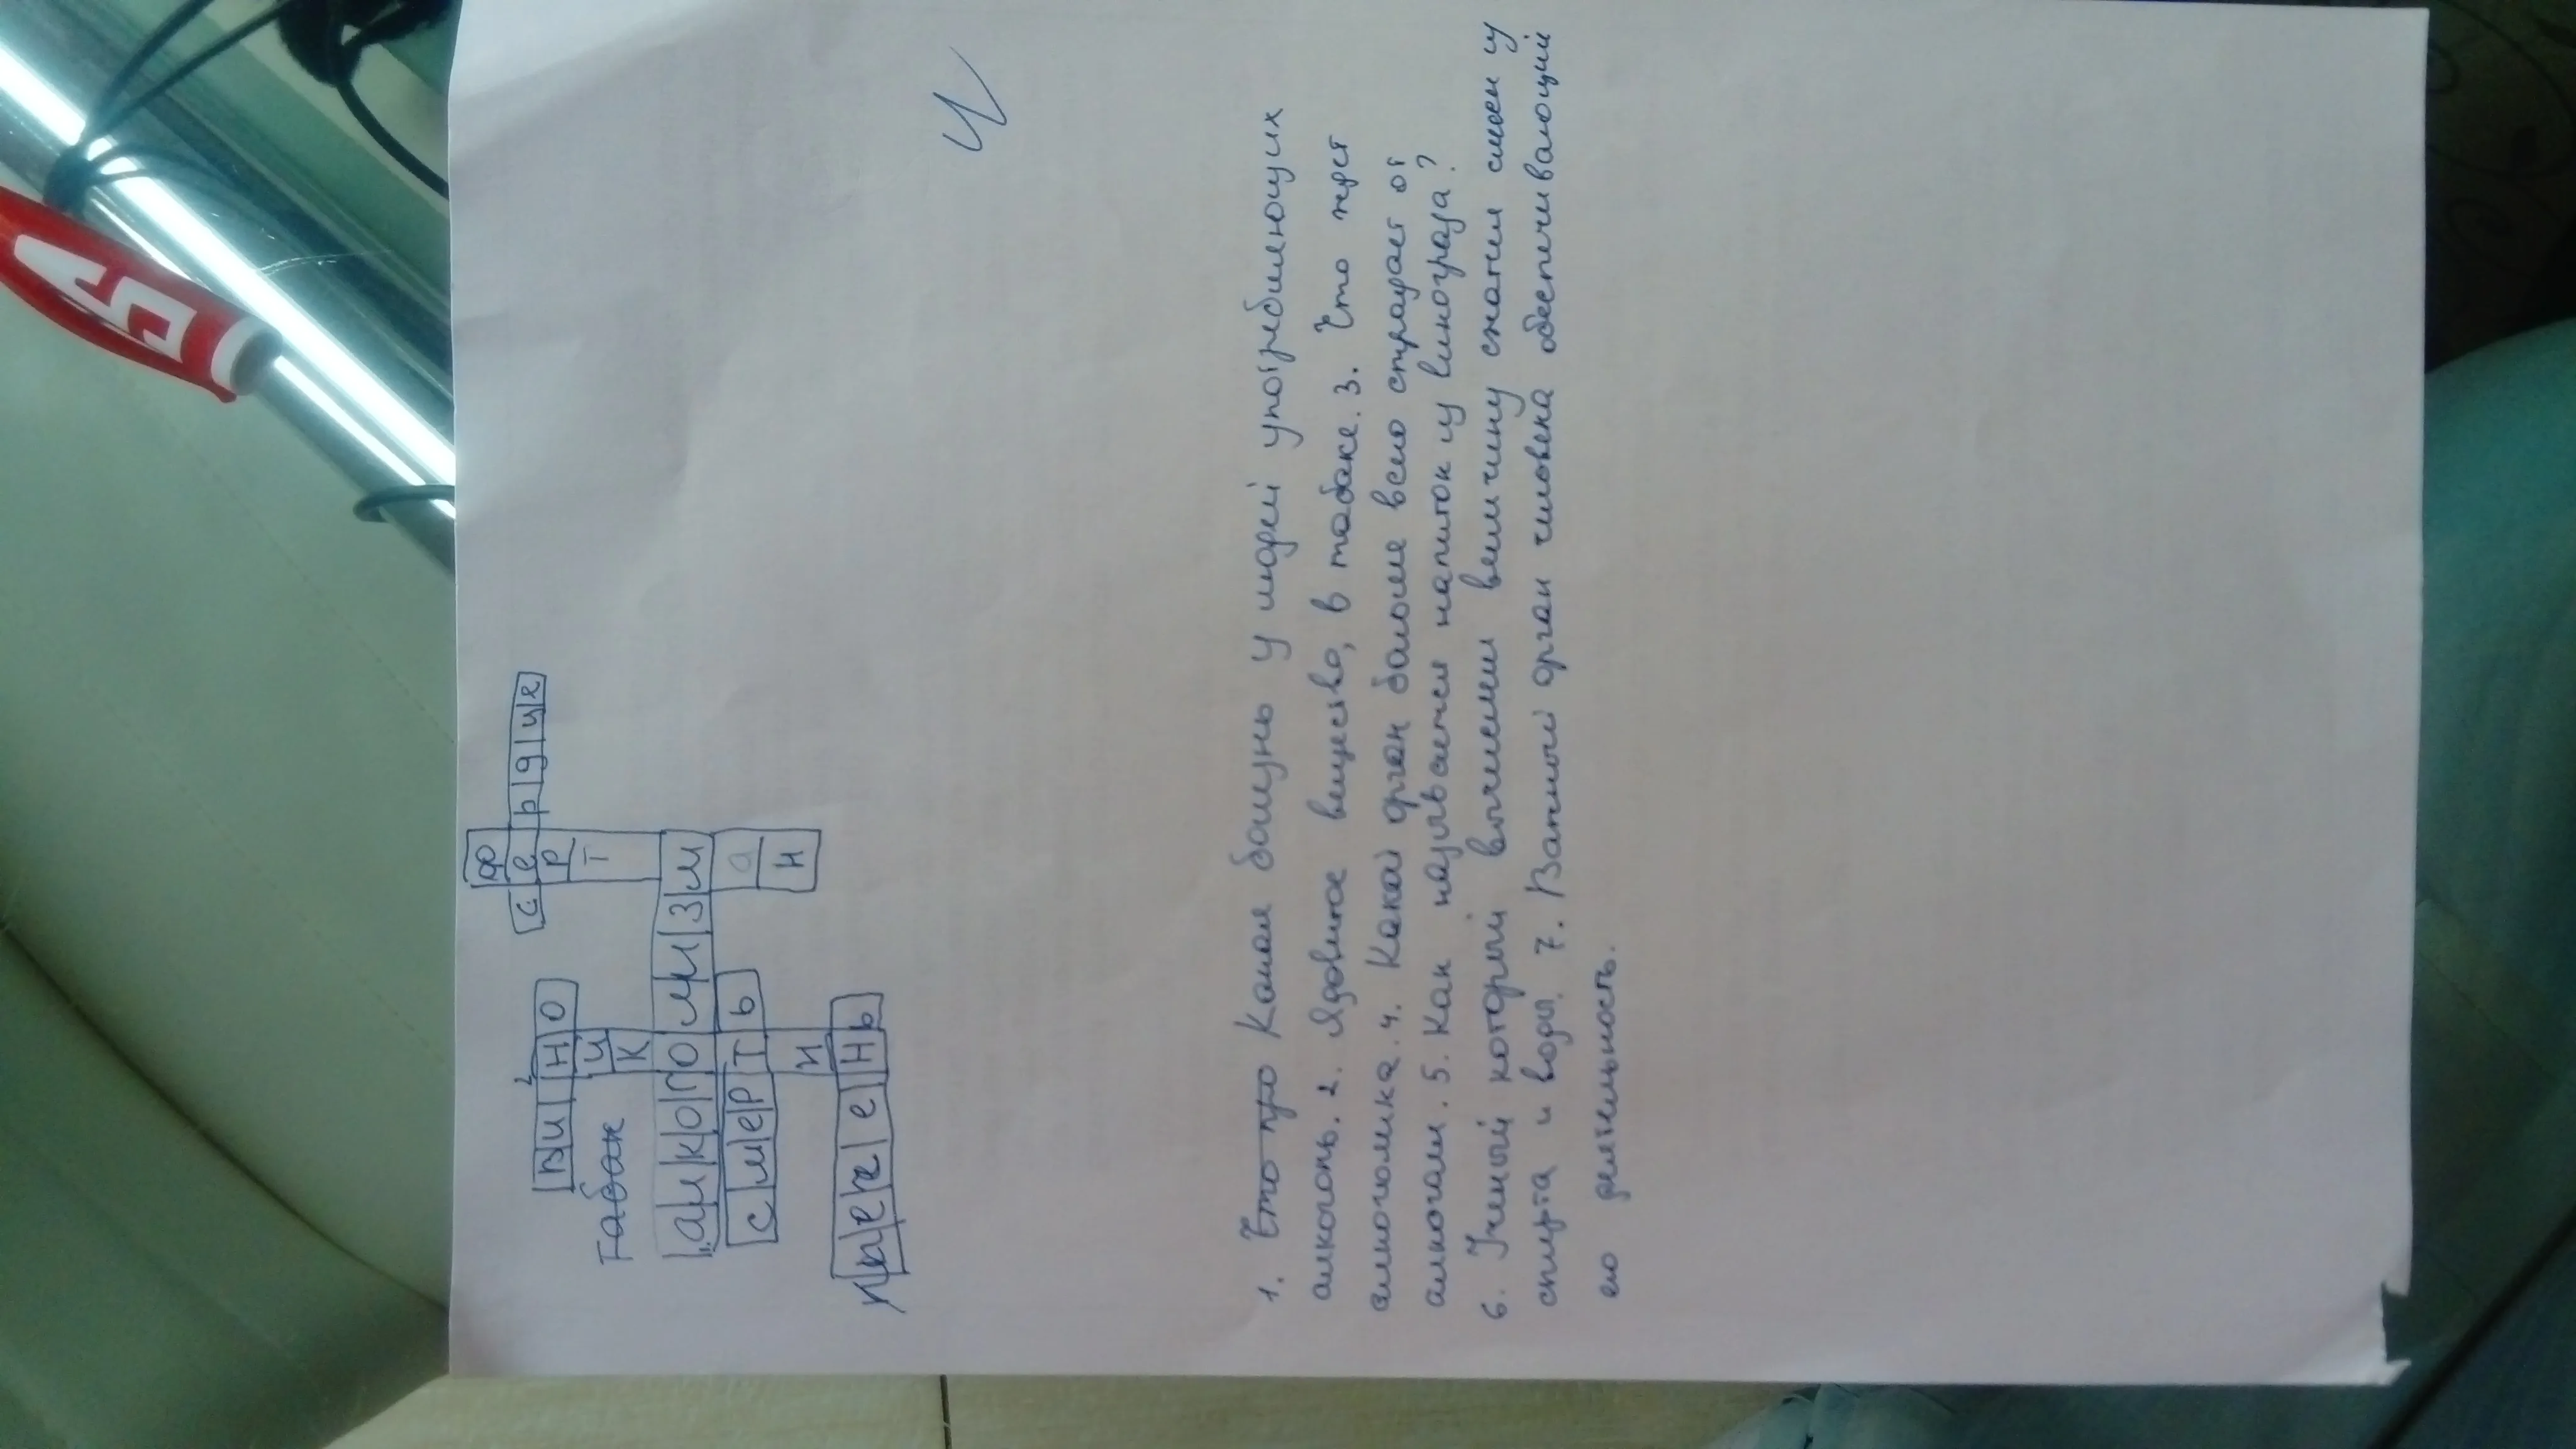 ф
сердце
р
т
2
вино
и
к
Табак
алкоголизм
смерть
а
и
н
печень
4
1. Что про Какая болизнь у людей употребиляющих
алкоголь. 2. Ядовитое вещество, в табаке. 3. Что ждет
алкоголика. 4. Какой орган больше всего страдает от
алкоголя. 5. Как называется напиток из винограда?
6. Ученый который вычеслил величину сжатия смеси из
спирта и воды. 7. Важный орган человека обеспечивающий
его деятельность.
5